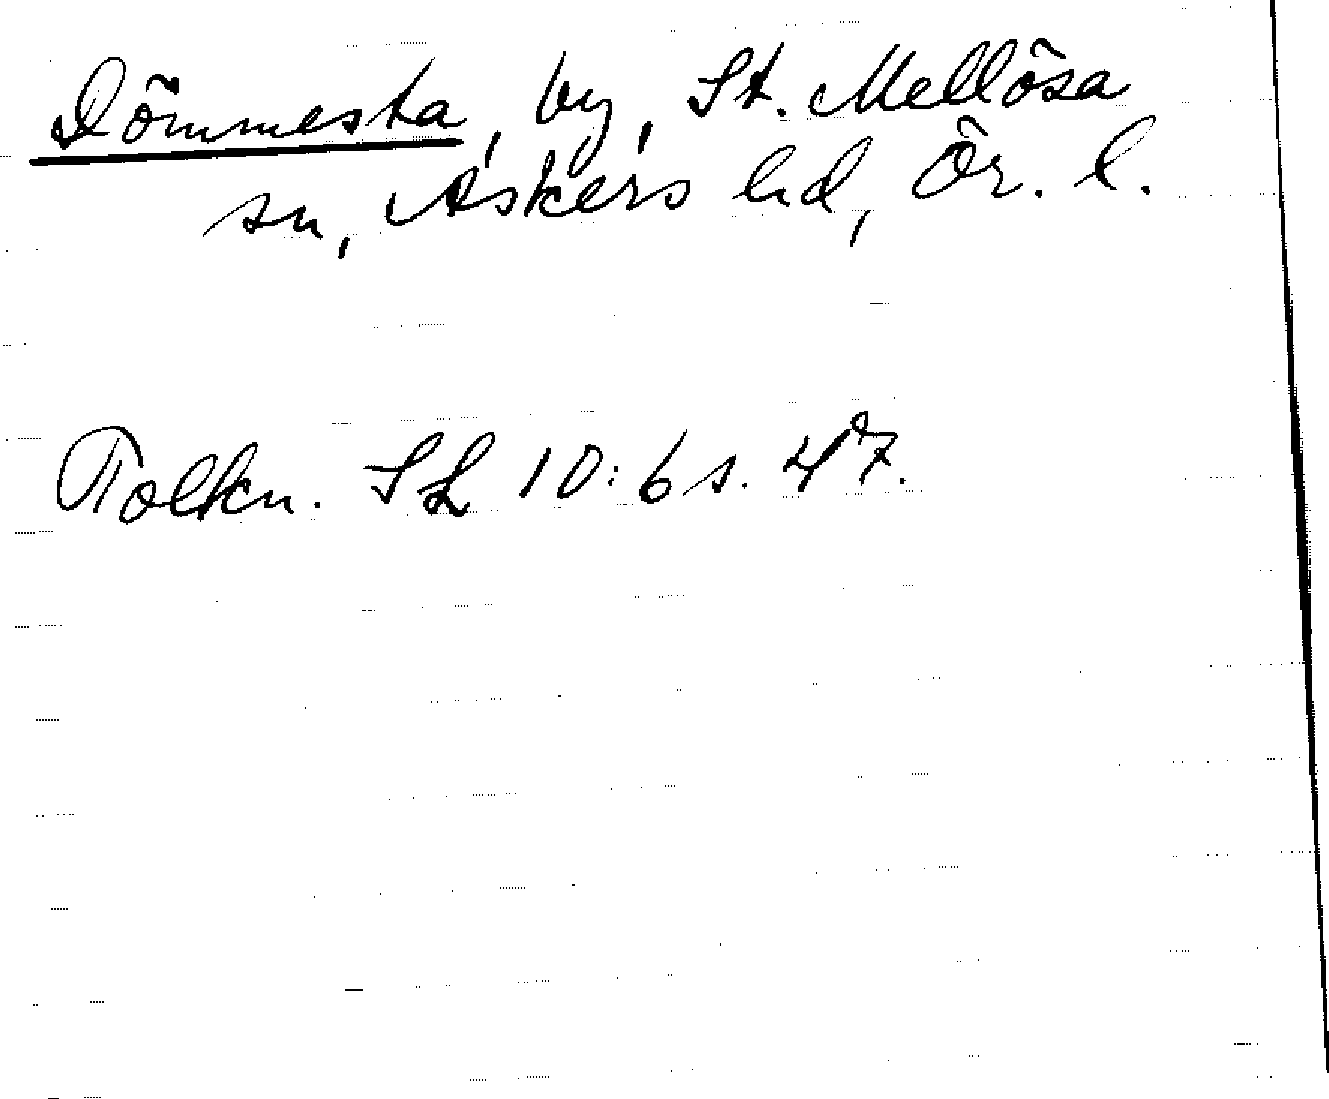 Dömmesta, by, St. Mellösa
sn, Askers hd, Ör. l.
Tolkn. SL 10:6 s. 47.